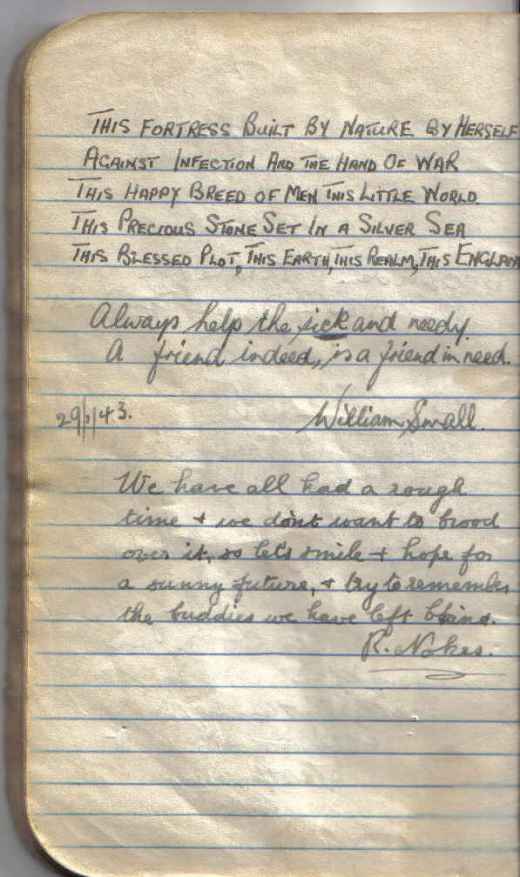 THIS FORTRESS BUILT BY NATURE BY HERSELF
AGAINST INFECTION AND THE HAND OF WAR
THIS HAPPY BREED OF MEN THIS LITTLE WORLD
THIS PRECIOUS STONE SET IN A SILVER SEA
THIS BLESSED PLOT, THIS EARTH, THIS REALM, THIS ENGLAND
Always help the sick and needy
A friend indeed, is a friend in need.
William Small.
We have all had a rough
time + we don't want to brood
over it, so let's smile + hope for
a sunny future, + try to remember
the buddies we have left
R. Nokes.